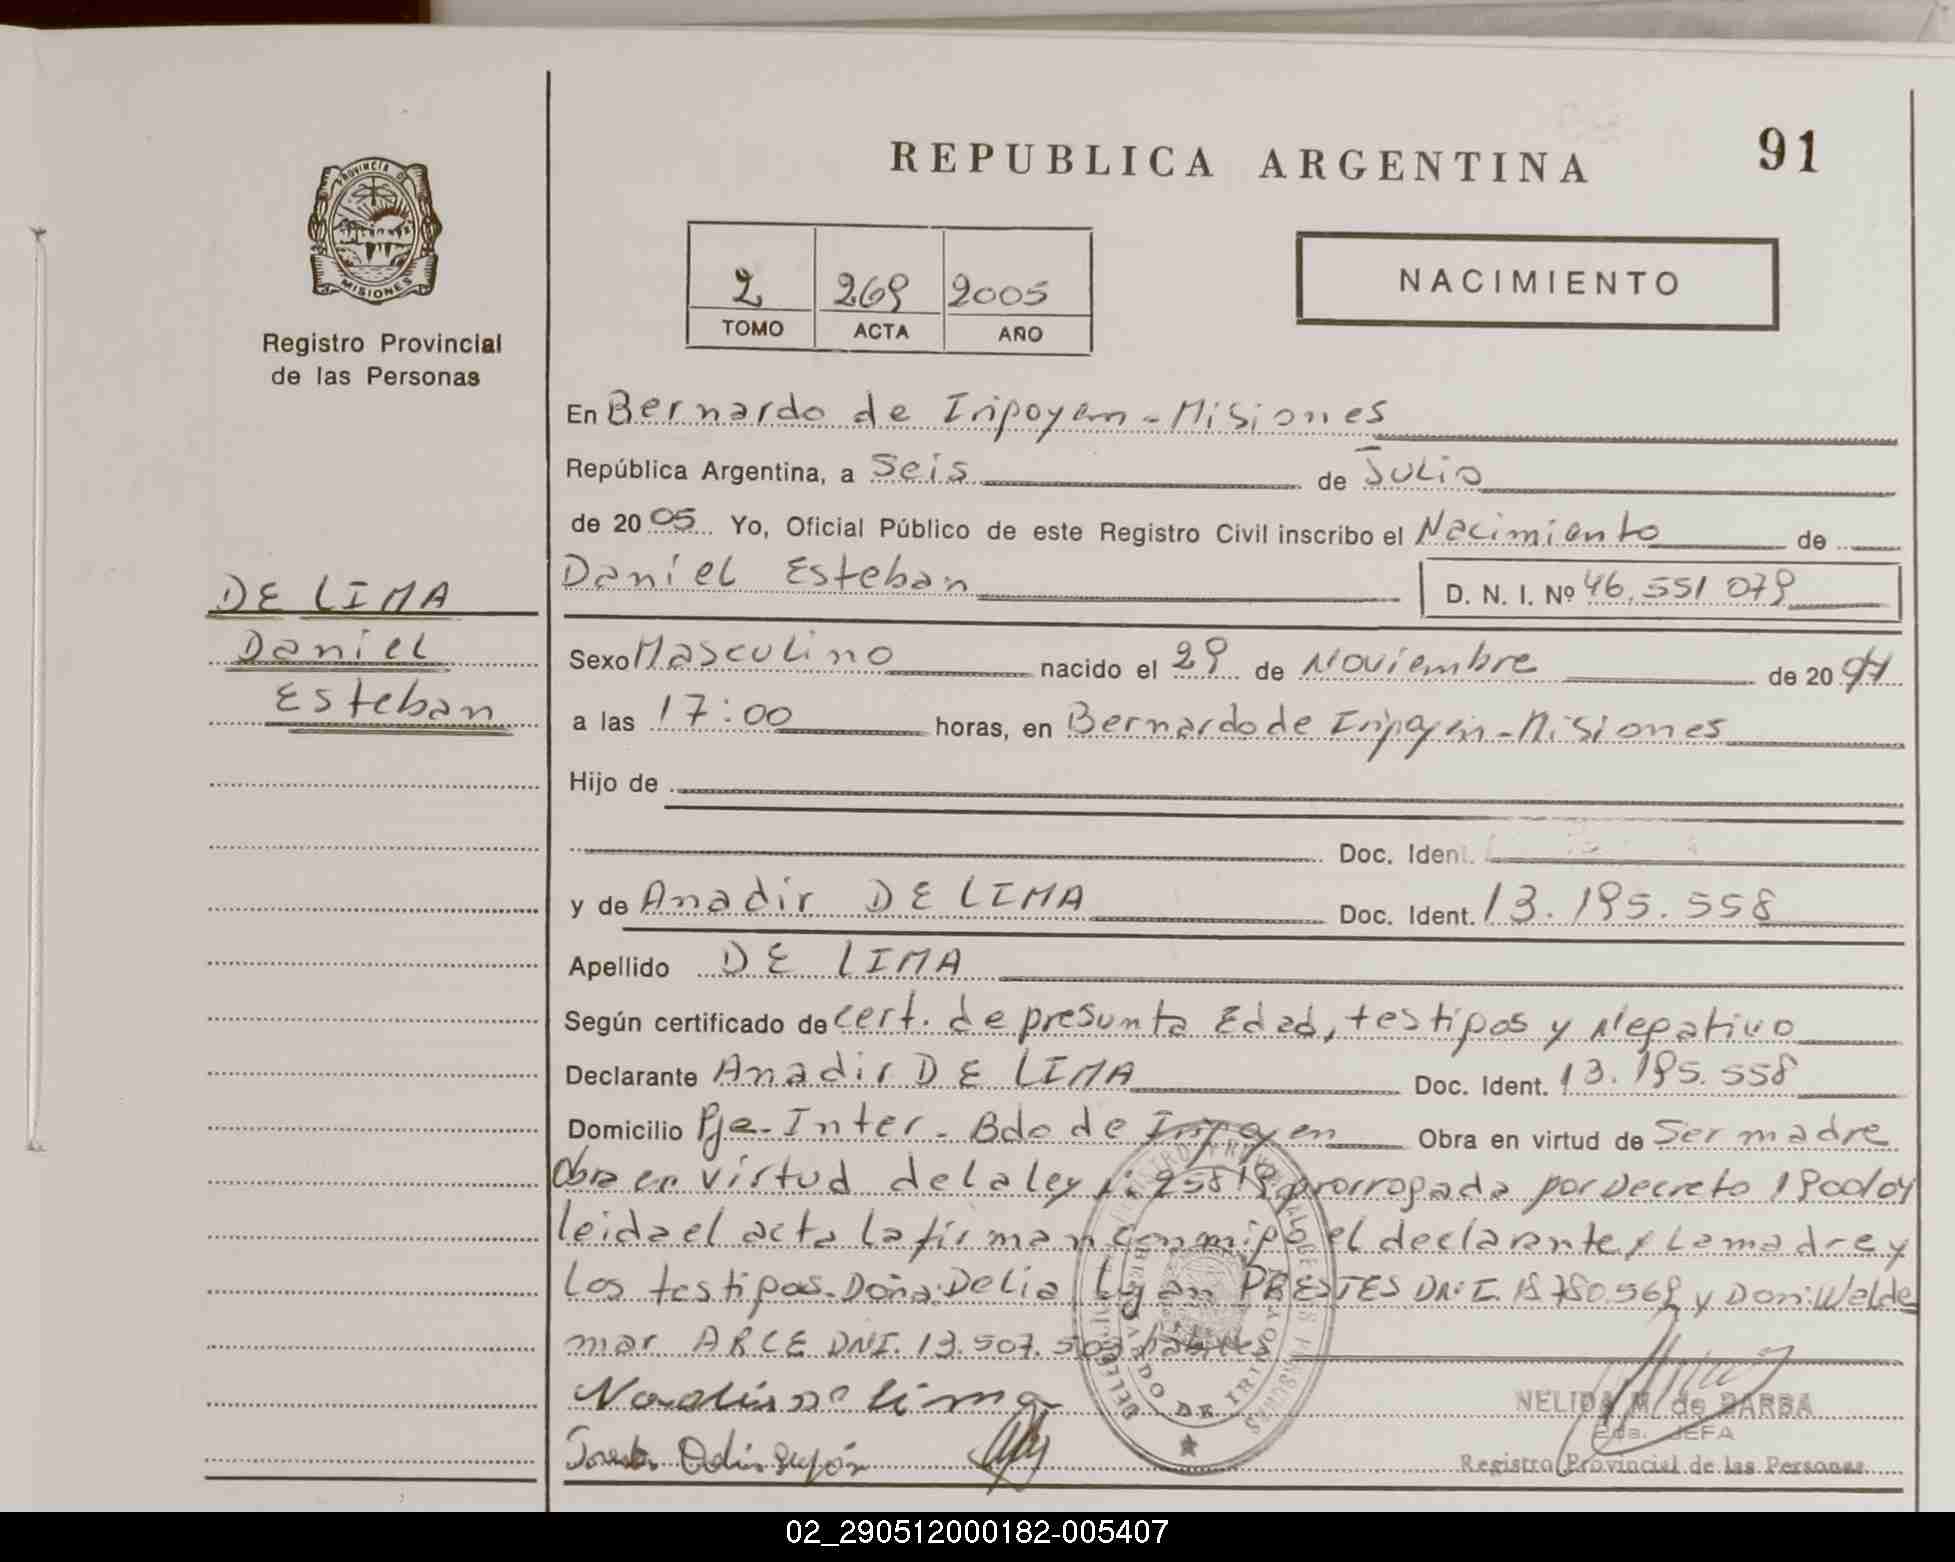 REPUBLICA ARGENTINA
91
PROVINCIA DE
MISIONES
Registro Provincial
de las Personas
2 269 2005
TOMO ACTA AÑO
NACIMIENTO
En Bernardo de Irigoyen - Misiones
República Argentina, a Seis de Julio
de 2005 Yo, Oficial Público de este Registro Civil inscribo el Nacimiento de
Daniel Esteban D. N. I. Nº 46.551 079
DE LIMA
Daniel
Esteban
Sexo Masculino nacido el 29 de Noviembre de 20
a las 17:00 horas, en Bernardo de Irigoyen - Misiones
Hijo de
Doc. Ident.
y de Anadir DE LIMA Doc. Ident. 13.195.558
Apellido DE LIMA
Según certificado de cert. de presunta Edad, testigos y Negativo
Declarante Anadir DE LIMA Doc. Ident. 13.195.558
Domicilio Pje. Inter - Bdo de Irigoyen Obra en virtud de Ser madre
Obra en virtud de la ley 25819 prorrogada por Decreto 1900/04
leida el acta la firman conmigo el declarante, la madre y
los testigos. Doña: Delia PRESTES DNI. y Don: Walde
mar ARCE DNI. 13.507.503 habiles
NELIDA M. de BARBA
JEFA
Registro Provincial de las Personas
02_290512000182-005407